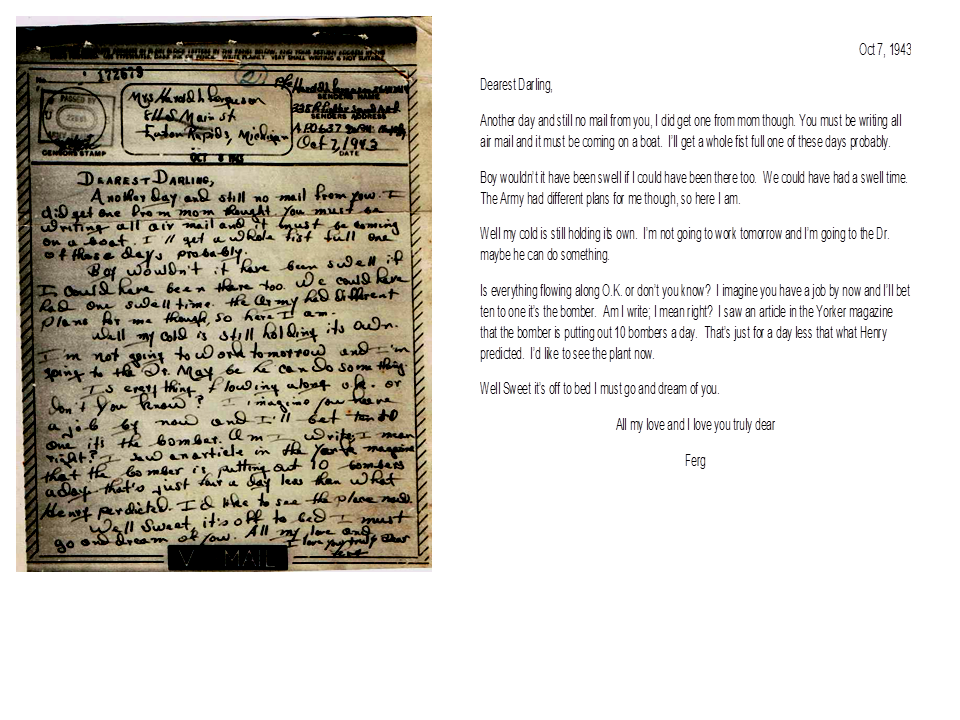 No.
172679
2
PASSED BY
ARMY
CENSOR'S STAMP
Mrs Harold L Ferguson
Main St
Eaton Rapids, Michigan
OCT 8 1943
SENDER'S NAME
SENDER'S ADDRESS
Oct 7, 1943
DATE
DEAREST DARLING,
Another day and still no mail from you. I
did get one from mom though. You must be
writing all air mail and it must be coming
on a boat. I'll get a whole fist full one
of these days probably.
Boy wouldn't it have been swell if
I could have been there too. We could have
had one swell time. the Army had different
plans for me though, so here I am.
Well my cold is still holding its own.
I'm not going to work tomorrow and I'm
going to the Dr. May be he can do something.
Is every thing flowing along o.k. or
don't you know? I imagine you have
a job by now and I'll bet ten to
one its the bomber. Am I write; I mean
right? I saw an article in the magazine
that the bomber is putting out 10 bombers
a day. that's just four a day less than what
Henry perdicted. I'd like to see the plant now.
Well Sweet, it's off to bed I must
go and dream of you. All my love and
I love you truly dear
Ferg
V MAIL
Oct 7, 1943
Dearest Darling,
Another day and still no mail from you, I did get one from mom though. You must be writing all
air mail and it must be coming on a boat. I'll get a whole fist full one of these days probably.
Boy wouldn't it have been swell if I could have been there too. We could have had a swell time.
The Army had different plans for me though, so here I am.
Well my cold is still holding its own. I'm not going to work tomorrow and I'm going to the Dr.
maybe he can do something.
Is everything flowing along O.K. or don't you know? I imagine you have a job by now and I'll bet
ten to one it's the bomber. Am I write; I mean right? I saw an article in the Yorker magazine
that the bomber is putting out 10 bombers a day. That's just for a day less that what Henry
predicted. I'd like to see the plant now.
Well Sweet it's off to bed I must go and dream of you.
All my love and I love you truly dear
Ferg